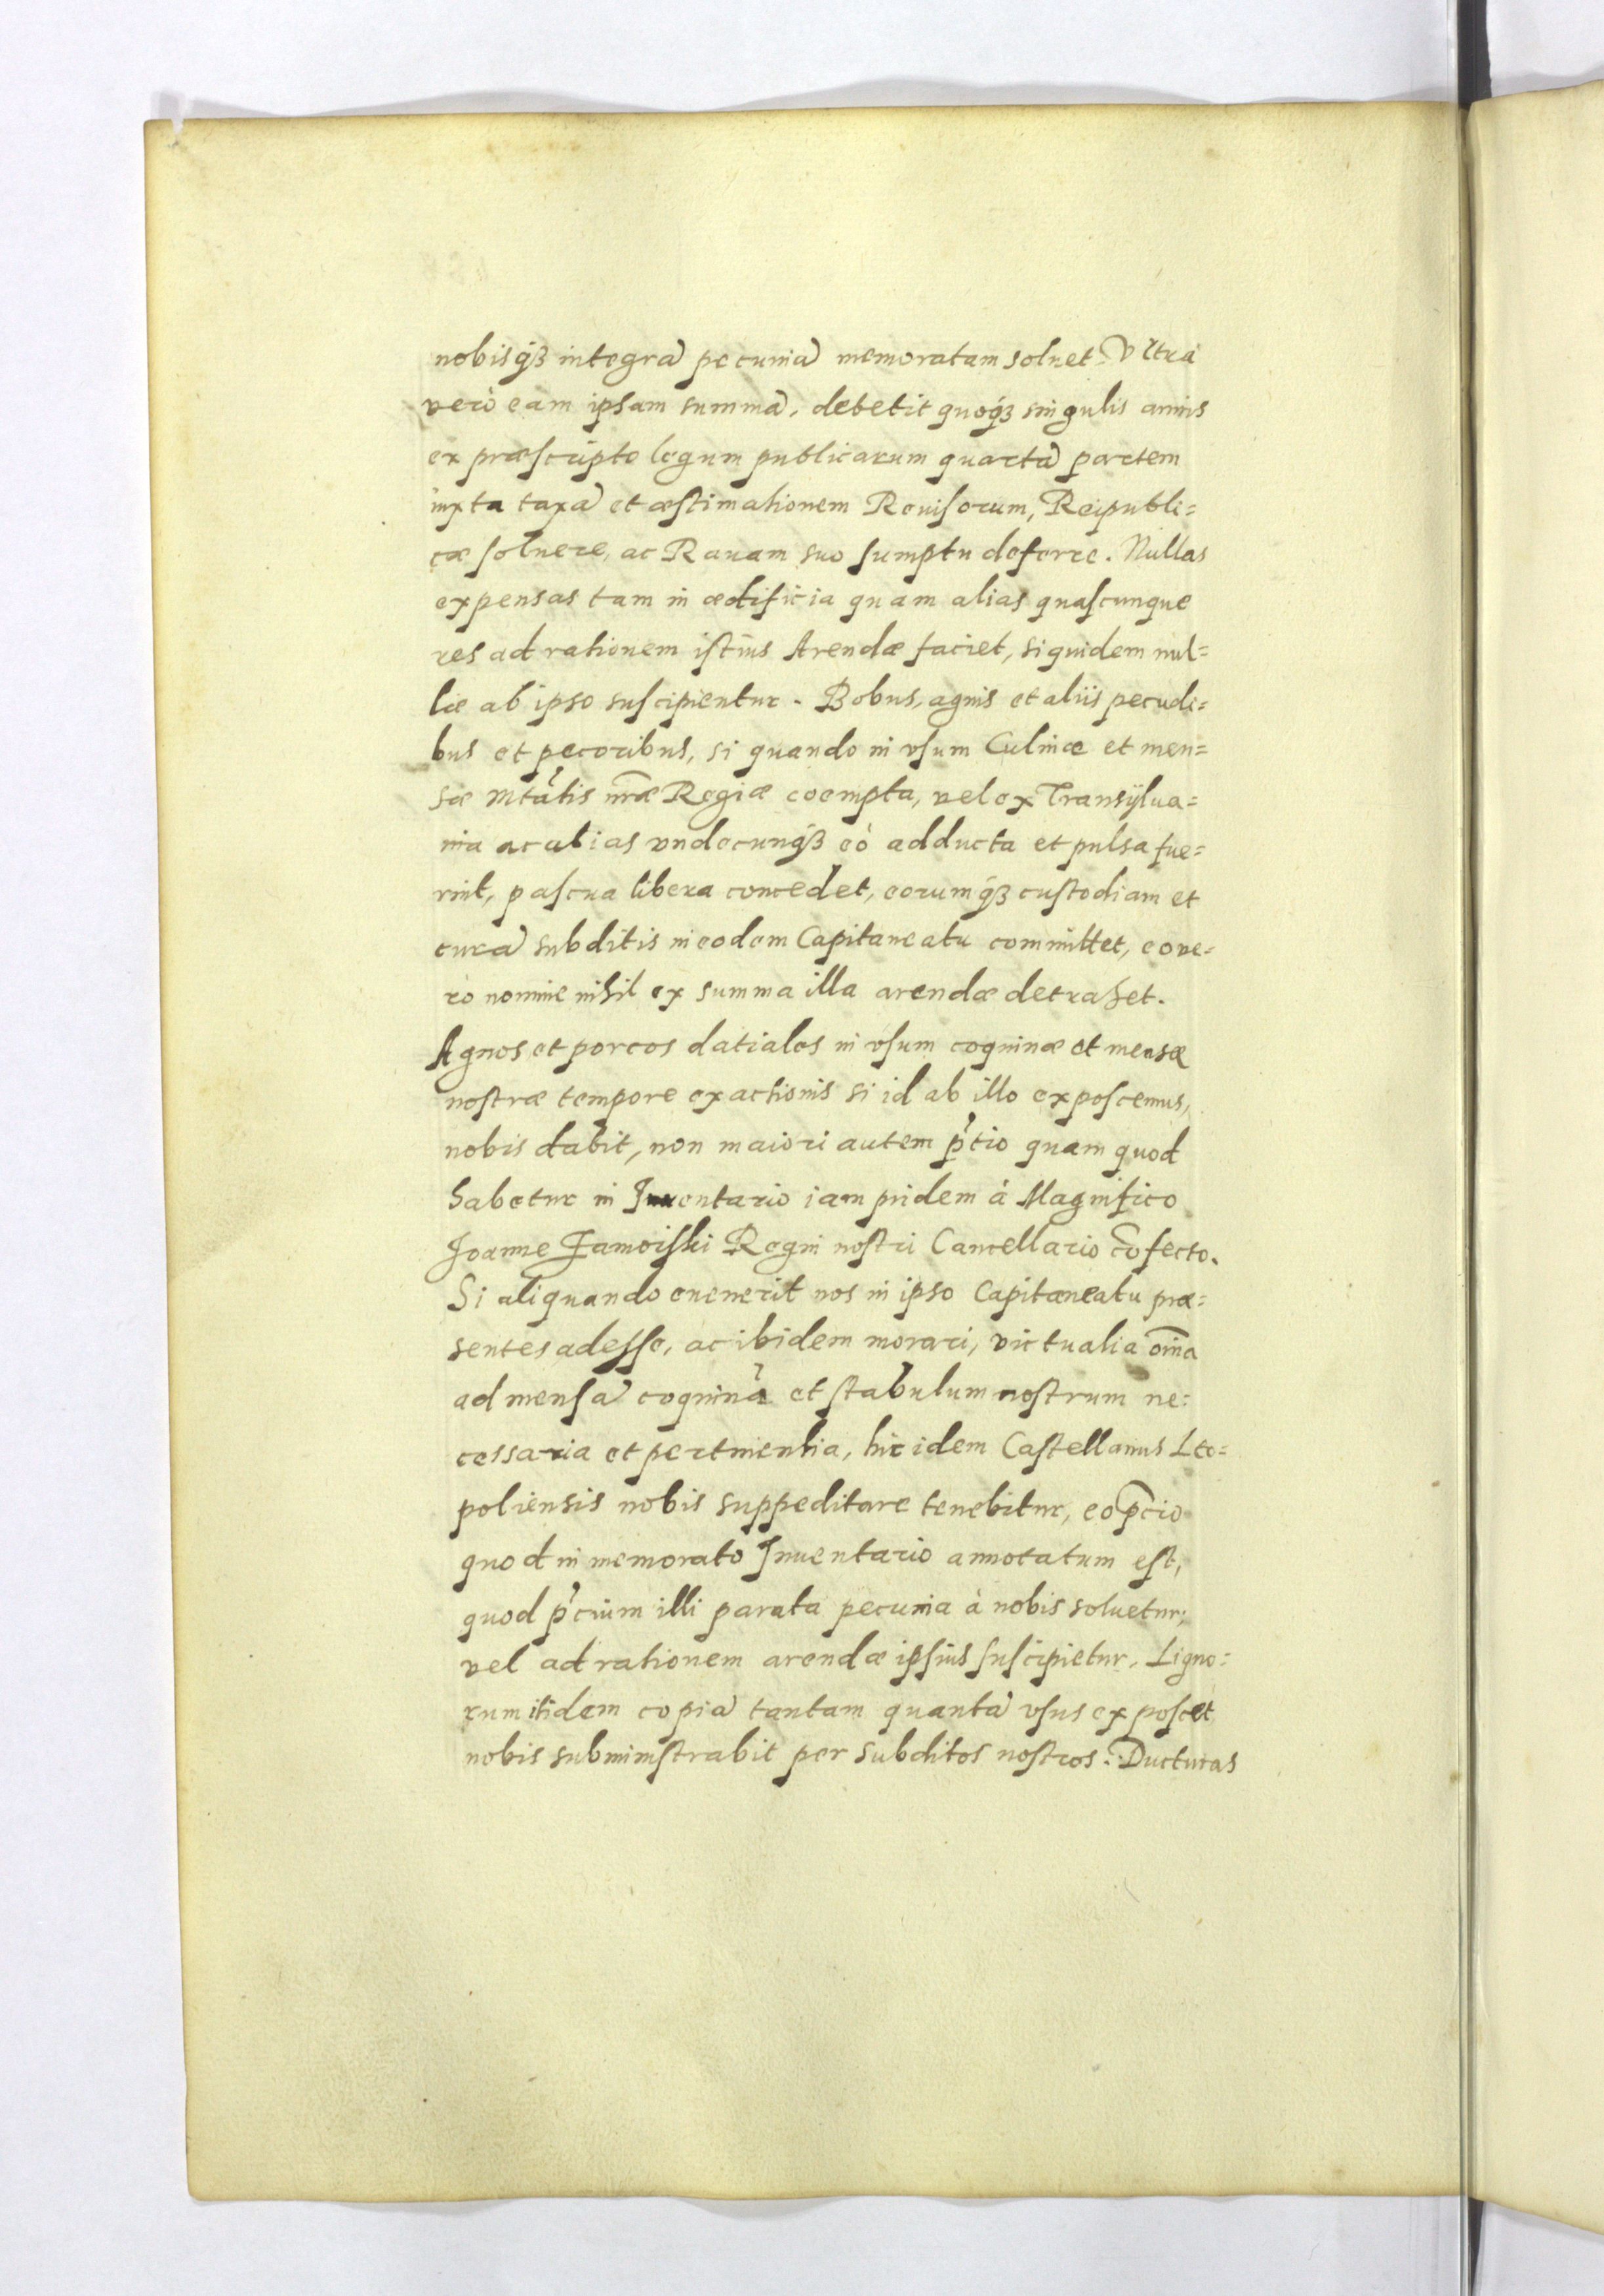 nobisq́ꝫ integrã pecuniã memoratam soluet. Vltra
verò eam ipsam summã, debebit quoq́ꝫ singulis annis
ex præscripto legum publicarum quartã partem
iuxta taxã et æstimationem Reuisorum, Reipubli=
cæ soluere, ac Rauam suo sumptu deferre. Nullas
expensas tam in ædificia quam alias quascunque
res ad rationem istius Arendæ faciet, siquidem nul=
læ ab ipso suscipientur. Bobus, agnis et aliis pecudi=
bus et pecoribus, si quando in vsum Culinæ et men=
sæ Mtātis nr̃æ Regiæ coempta, vel ex Transÿlua=
nia ac alias vndecunq́ꝫ eò adducta et pulsa fue=
rint, pascua libera concedet, eorumq́ꝫ custodiam et
curã subditis in eodem Capitaneatu committet, eo ve=
rò nomine nihil ex summa illa arendæ detrahet.
Agnos et porcos datiales in vsum coquinæ et mensæ
nostræ tempore exactionis si id ab illo exposcemus,
nobis dabit, non maiori autem p̃tio quam quod
habetur in Inuentario iam pridem à Magnifico
Joanne Zamoiski Regni nostri Cancellario cõfecto.
Si aliquando euenerit nos in ipso Capitaneatu præ=
sentes adesse, ac ibidem morari, victualia om̃ia
ad mensã coquinã et stabulum nostrum ne=
cessaria et pertinentia, hic idem Castellanus Leo=
poliensis nobis suppeditare tenebitur, eo p̃cio
quod in memorato Inuentario annotatum est,
quod p̃cium illi parata pecunia à nobis soluetur;
vel ad rationem arendæ ipsius suscipietur. Ligno=
rum itidem copiã tantam quantã vsus exposcet
nobis subministrabit per subditos nostros. Ducturas